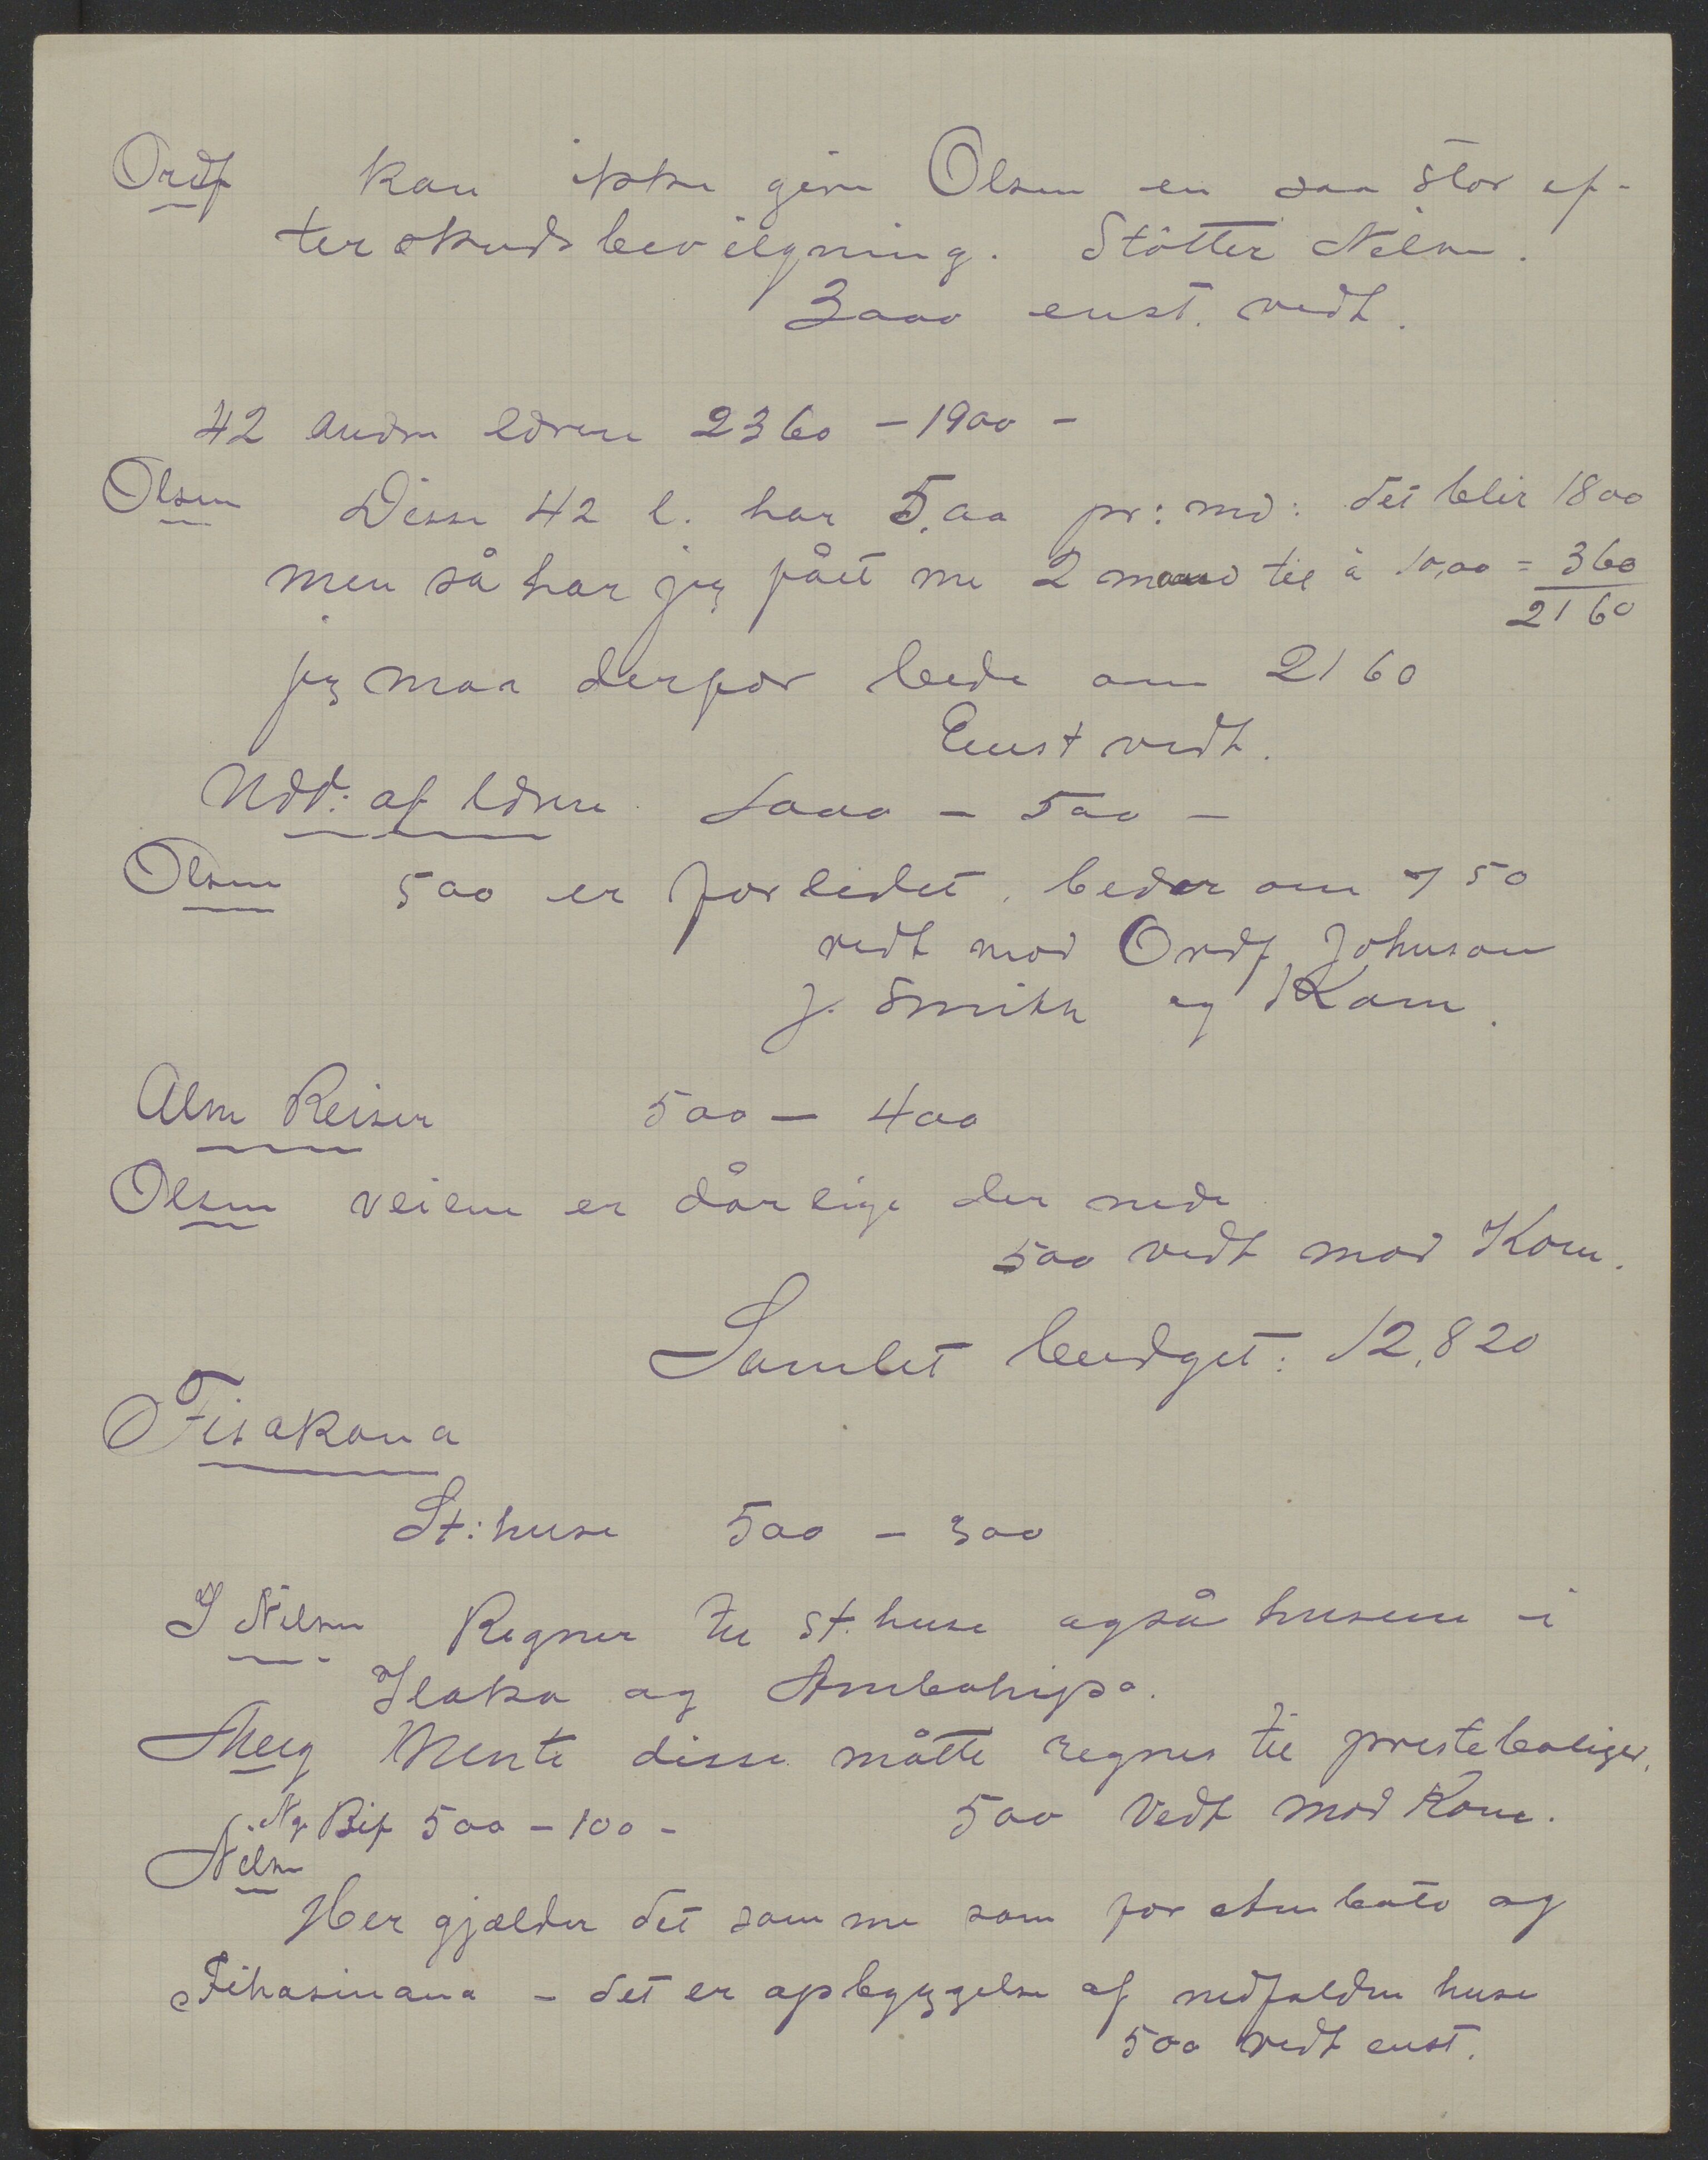 Ordf kan ikke give Olsen en saa stor ef-
terskudsbevilgning. Støtter Nilsen.
3000 enst. vedt.
42 andre lærere 2360 - 1900 -
Olsen Disse 42 l. har 5,00 pr: md: det blir 1800
men så har jeg fået me 2 mand til à 10,00 = 360
2160
jeg maa derfor bede om 2160
Enst vedt.
Udd: af lærere 1000 - 500 -
Olsen 500 er for lidet, beder om 750
vedt mod Ordf Johnson
J. Smith og Kom.
Alm Reiser 500 - 400
Olsen veiene er dårlige der nede
500 vedt mod Kom.
Samlet budget: 12,820
Fisakana
St: huse 500 - 300
I Nilsen Regner til st. huse også husene i
Ilaka og Ambohipo.
Meeg Mente disse måtte regnes til presteboliger.
500 Vedt mod Kom.
Ng. Bif 500 - 100 -
Nilsen
Her gjælder det samme som for Ambato og
Fihasinana - det er opbyggelse af nedfaldne huse
500 vedt enst.